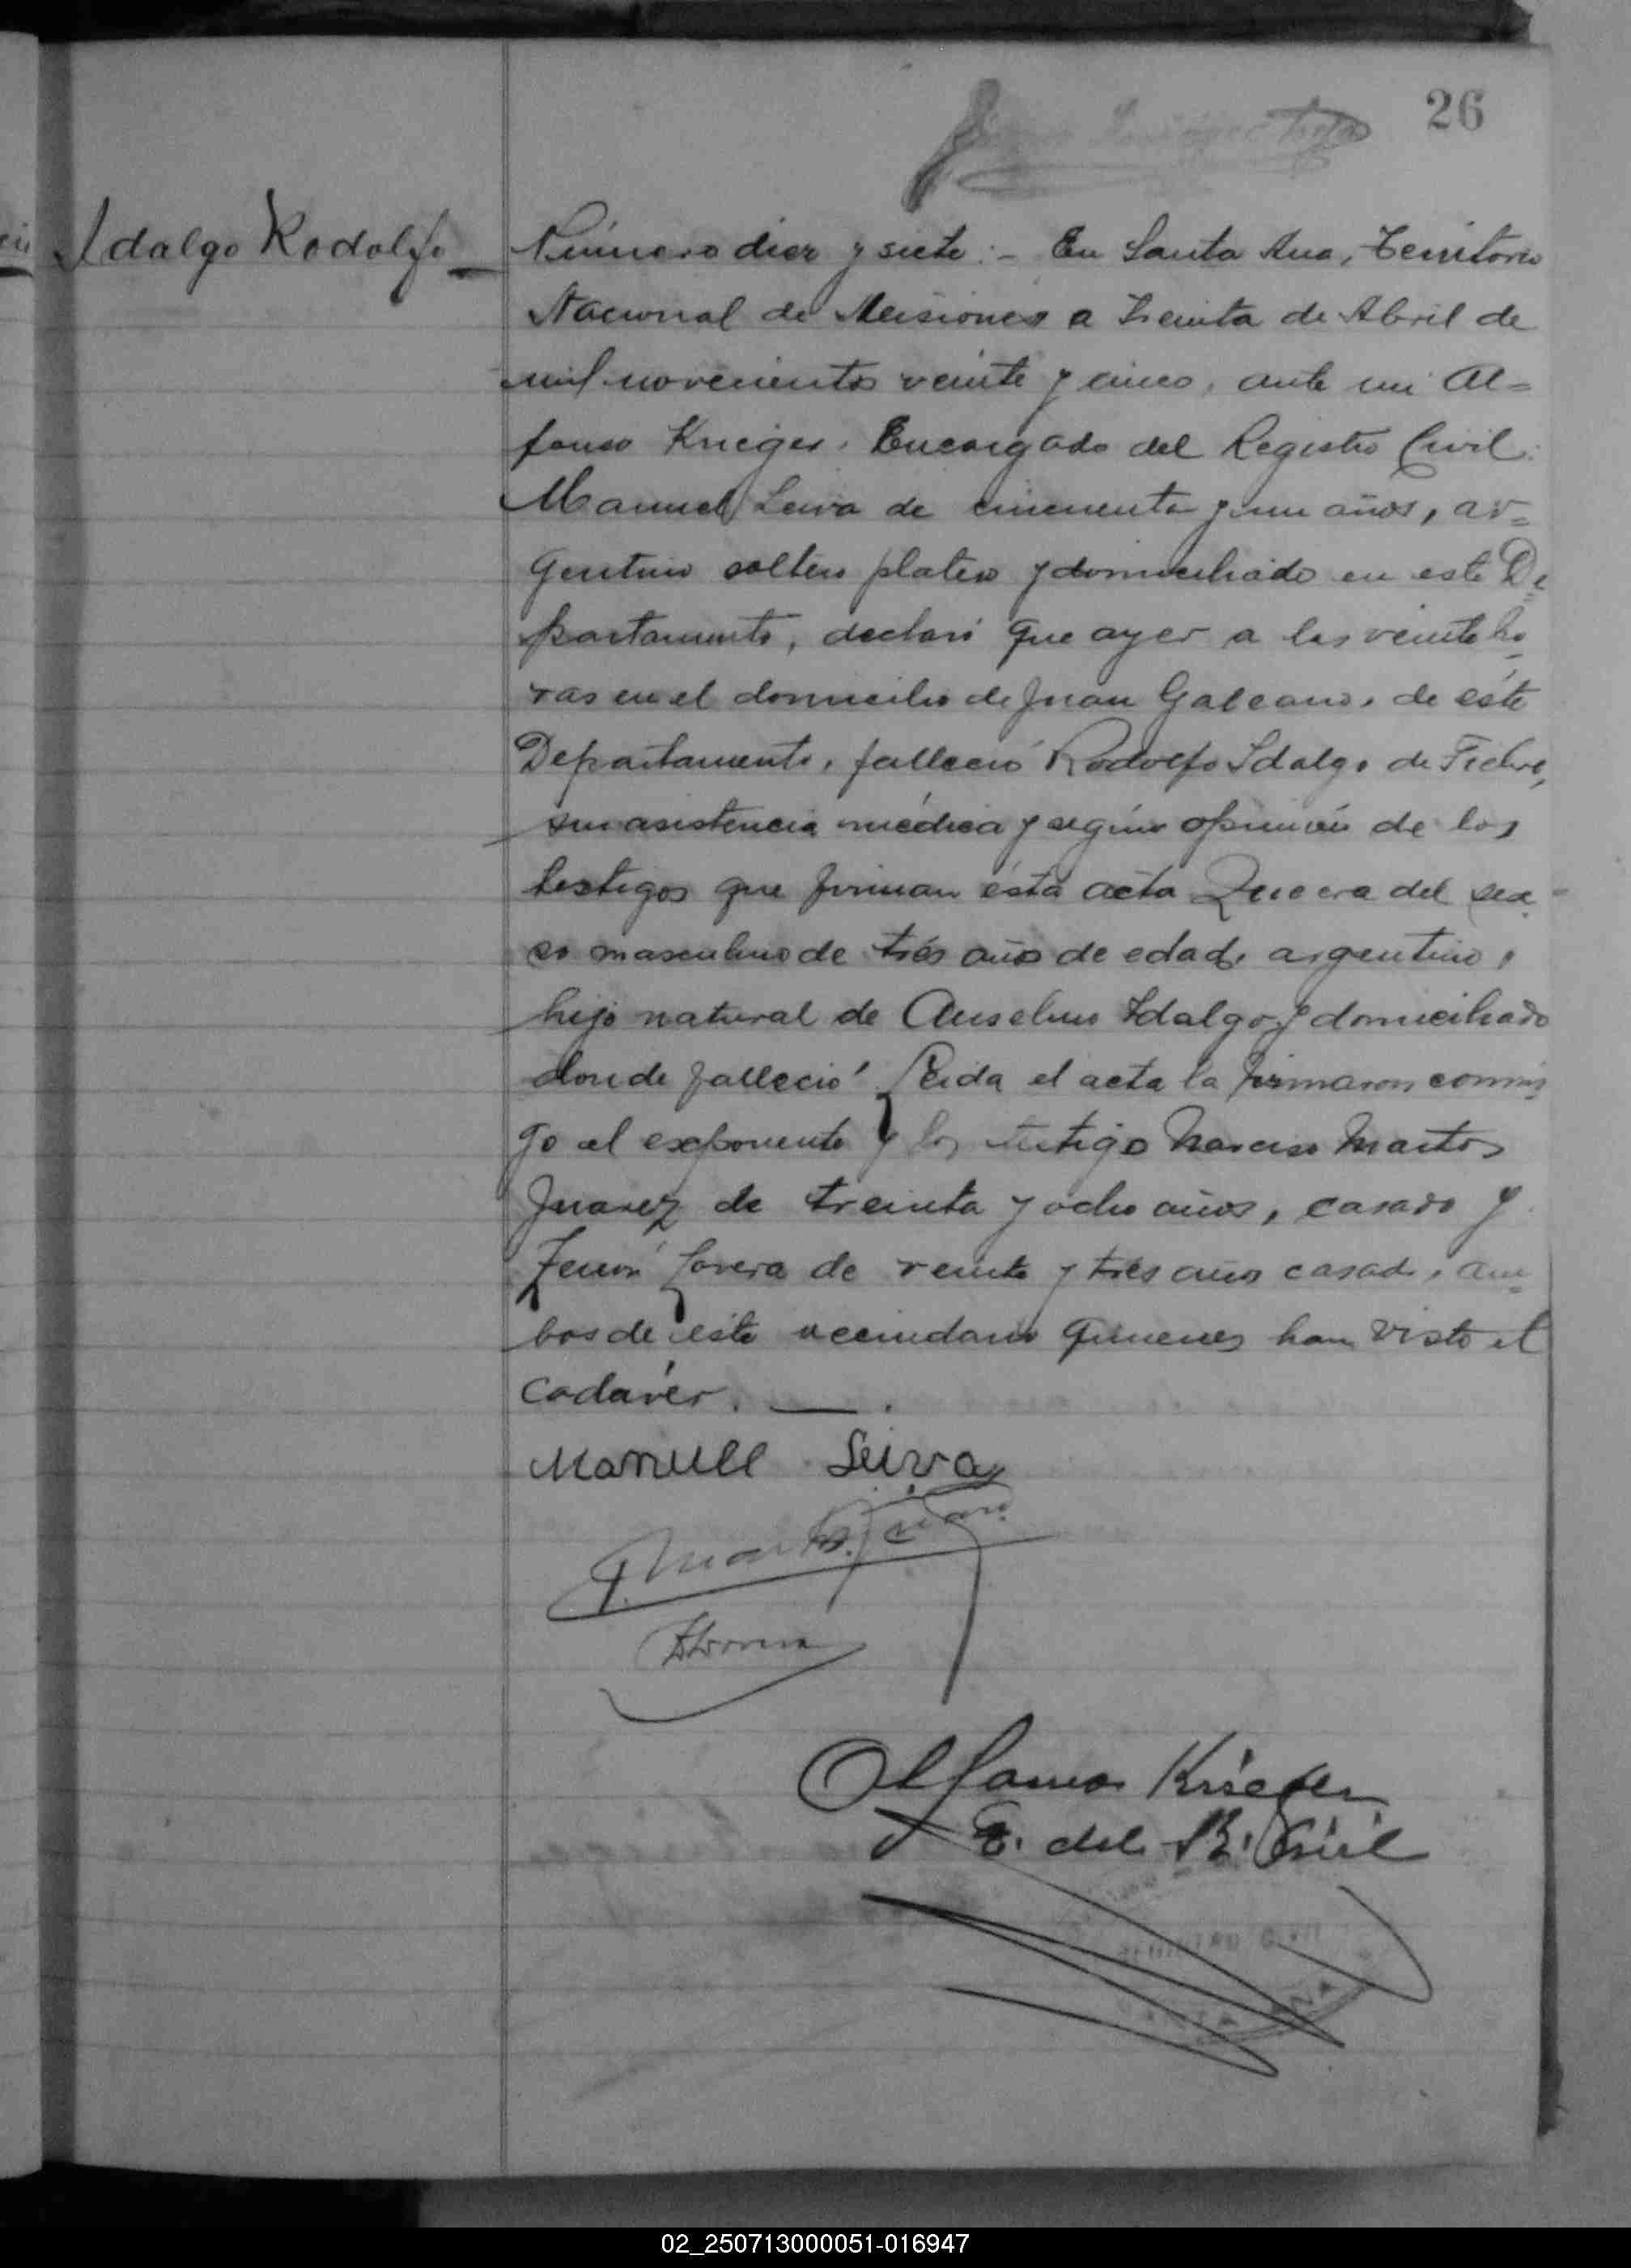 26
Idalgo Rodolfo
Número diez y siete:- En Santa Ana, Territorio
Nacional de Misiones a Treinta de Abril de
mil novecientos veinte y cinco, ante mi Al=
fonso Krieger, Encargado del Registro Civil:
Manuel Leiva de cincuenta y un años, ar=
gentino soltero platero y domiciliado en este De
partamento, declaró que ayer a las veinte ho
ras en el domicilio de Juan Galeano, de este
Departamento, falleció Rodolfo Idalgo de Fiebre,
sin asistencia médica y según opinión de los
testigos que firman ésta acta Que era del sex
so masculino de trés año de edad, argentino,
hijo natural de Anselmo Idalgo y domiciliado
donde falleció Leida el acta la firmaron conmi
go el exponente y los testigo Narciso Martos
Juarez de treinta y ocho años, casado y
Zenón Lovera de veinte y trés años casado, am
bos de este vecindario quienes han visto el
cadavér.
Manuel Leiva
Alfonso Krieger
E. del R. Civil
REGISTRO CIVIL
SANTA ANA
02_250713000051-016947